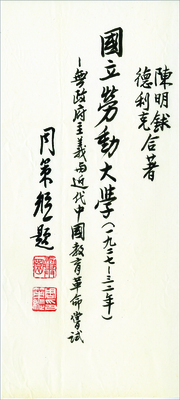 陳明銶
德利克合著
國立勞動大學(一九二七—三二年)
—無政府主義与近代中國教育革命嘗試
周策縱題